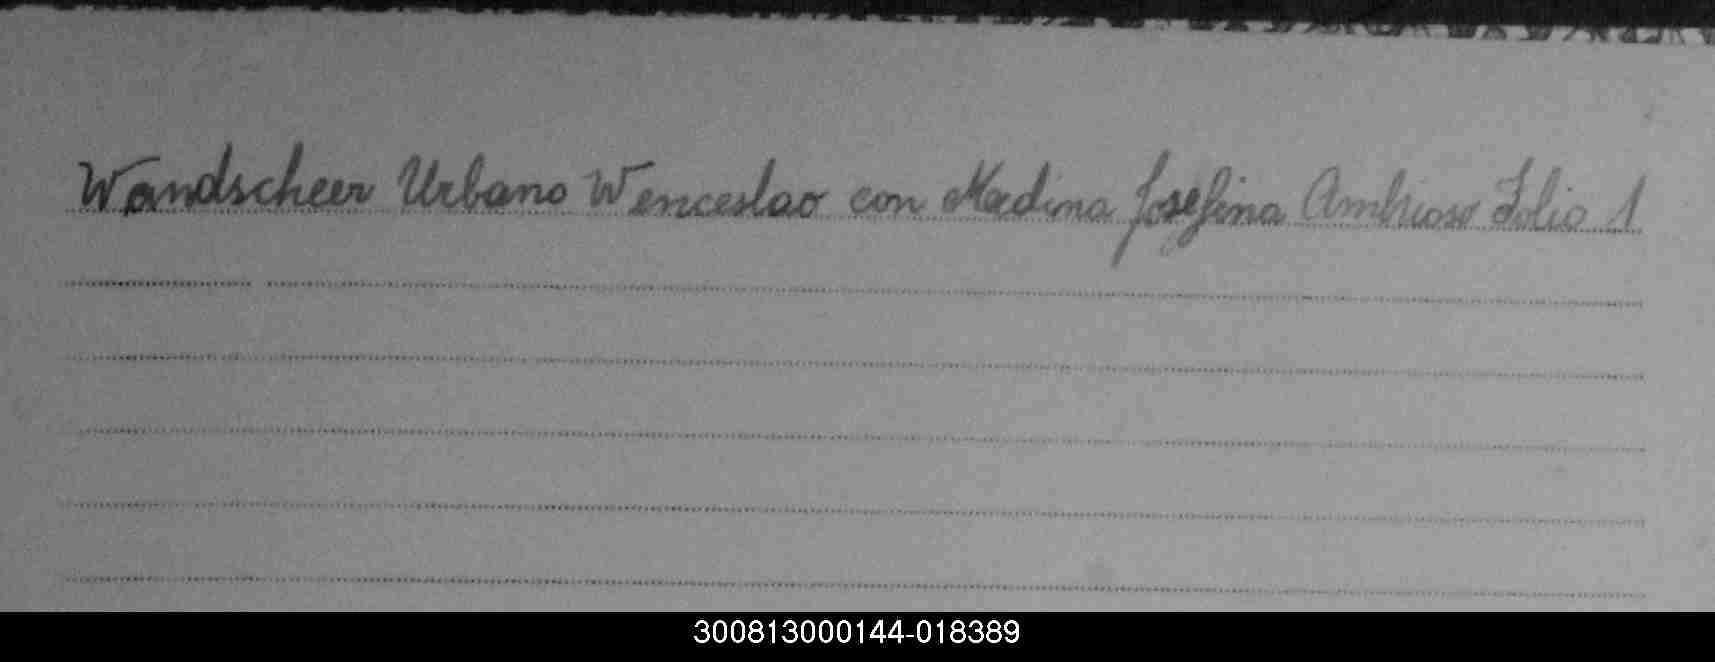 Wandscheer Urbano Wenceslao con Medina Josefina Ambrioso Folio 1
300813000144-018389